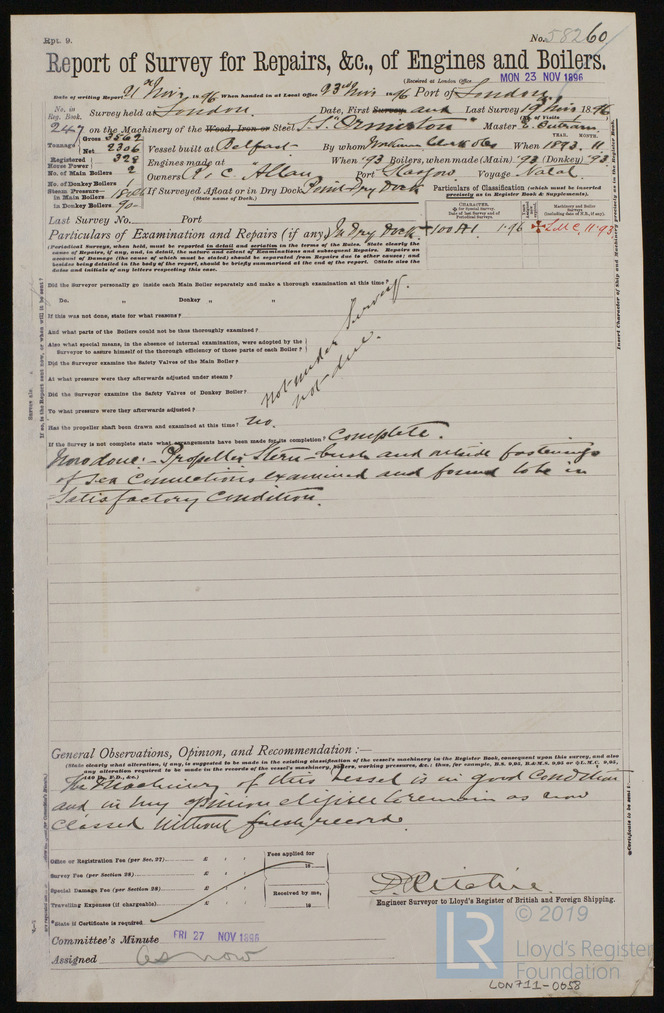 Rpt. 9.
No. 58260
Report of Survey for Repairs, &c., of Engines and Boilers.
(Received at London Office MON 23 NOV 1896
Date of writing Report 21st Nov 1896 When handed in at Local Office 23rd Nov 1896 Port of London
No. in Reg. Book. Survey held at London Date, First Survey and Last Survey 19 Nov 1896
(No. of Visits 1
247 on the Machinery of the Wood, Iron or Steel S.S. "Ormiston" Master E. Outram
Tonnage Gross 3562 Net 2306 Vessel built at Belfast By whom Workman Clark & Co When 1893. 11
YEAR. MONTH.
Registered Horse Power 328 Engines made at When '93 Boilers, when made (Main) '93 (Donkey) '93
No. of Main Boilers 2 Owners J & C. Allan Port Glasgow Voyage Natal
No. of Donkey Boilers 1 If Surveyed Afloat or in Dry Dock Dry Dock
(State name of Dock.)
Steam Pressure in Main Boilers
in Donkey Boilers 90
Particulars of Classification (which must be inserted precisely as in Register Book & Supplements).
Last Survey No. Port
Particulars of Examination and Repairs (if any) In Dry Dock
+100 A1. 1.96 LMC. 11.93
(Periodical Surveys, when held, must be reported in detail and seriatim in the terms of the Rules. State clearly the
Insert Character of Ship and Machinery precisely as in the Register Book
Did the Surveyor personally go inside each Main Boiler separately and make a thorough examination at this time?
Do. „ Donkey „ „
If this was not done, state for what reasons?
And what parts of the Boilers could not be thus thoroughly examined?
Also what special means, in the absence of internal examination, were adopted by the Surveyor to assure himself of the thorough efficiency of those parts of each Boiler?
Did the Surveyor examine the Safety Valves of the Main Boiler?
At what pressure were they afterwards adjusted under steam?
Did the Surveyor examine the Safety Valves of Donkey Boiler?
To what pressure were they afterwards adjusted?
not under Survey.
not due.
Has the propeller shaft been drawn and examined at this time? No.
If the Survey is not complete state what arrangements have been made for its completion? Complete.
Now done:- Propeller Stern-bush and outside fastenings
of Sea Connections examined and found to be in
Satisfactory Condition.
General Observations, Opinion, and Recommendation:—
(State clearly what alteration, if any, is suggested to be made in the existing classification of the vessel's machinery in the Register Book, consequent upon this survey, and also
any alteration required to be made in the records of the vessel's machinery, boilers, working pressures, &c.; thus, for example, B.S. 9,95, B.&M.S. 9,95 or L.M.C. 9,95,
The Machinery of this Vessel is in good Condition
and in my opinion eligible to remain as now
Classed without fresh record.
Office or Registration Fee (per Sec. 27) £
Survey Fee (per Section 28) £
Special Damage Fee (per Section 28) £
Travelling Expenses (if chargeable) £
Fees applied for
18
Received by me,
18
*State if Certificate is required
D. Ritchie.
Engineer Surveyor to Lloyd's Register of British and Foreign Shipping.
Committee's Minute FRI 27 NOV 1896
Assigned as now
*Certificate to be sent to
LR
© 2019
Lloyd's Register
Foundation
LON711-0058